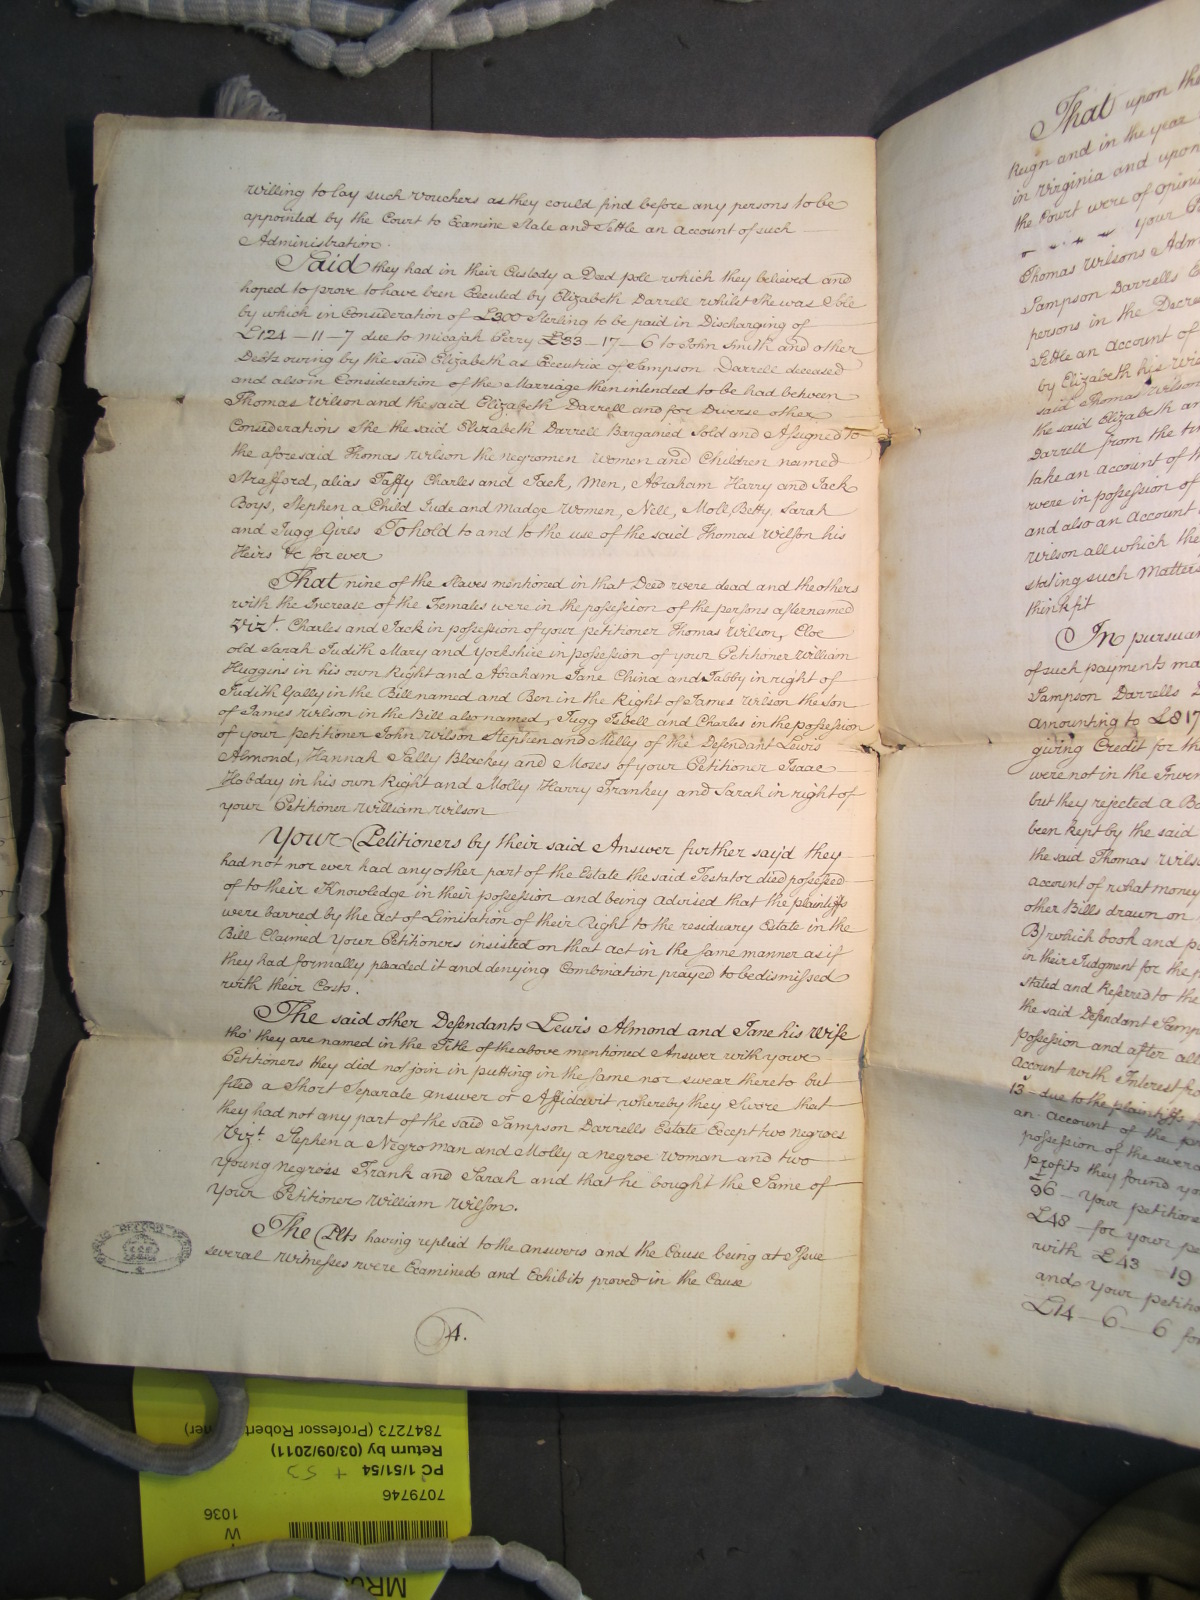 willing to lay such vouchers as they could find before any persons to be
appointed by the Court to Examine State and Settle an account of such
Administration.
Said they had in their Custody a Deed poll which they believed and
hoped to prove to have been Executed by Elizabeth Darrell whilst she was Sole
by which in Consideration of £300 Sterling to be paid in Discharging of
£124-11-7 due to Micajah Perry £33-17-6 to John Smith and other
Debts owing by the said Elizabeth as Executrix of Sampson Darrell deceased
and also in Consideration of the Marriage then intended to be had between
Thomas Wilson and the said Elizabeth Darrell and for Diverse other
Considerations She the said Elizabeth Darrell Bargained Sold and Assigned to
the aforesaid Thomas Wilson the negromen women and Children named
Strafford, alias Taffy Charles and Jack, Men, Abraham Harry and Jack
Boys, Stephen a Child Jude and Madge women, Nell, Moll Betty, Sarah
and Jugg Girls To hold to and to the use of the said Thomas Wilson his
Heirs &c for ever
That nine of the Slaves mentioned in that Deed were dead and the others
with the Increase of the Females were in the possession of the persons afternamed
Vizt. Charles and Jack in possession of your petitioner Thomas Wilson, Cloe
old Sarah Judith Mary and Yorkshire in possession of your Petitioner William
Huggins in his own Right and Abraham Jane China and Tabby in right of
Judith Gally in the Bill named and Ben in the Right of James Wilson the son
of James Wilson in the Bill also named, Jugg Isbell and Charles in the possession
of your petitioner John Wilson Stephen and Milly of the Defendant Lewis
Almond, Hannah Sally Blackey and Moses of your Petitioner Isaac
Hobday in his own Right and Molly Harry Frankey and Sarah in right of
your Petitioner William Wilson
Your Petitioners by their said Answer further say'd they
had not nor ever had any other part of the Estate the said Testator died possessed
of to their Knowledge in their possession and being advised that the plaintiffs
were barred by the act of Limitation of their Right to the residuary Estate in the
Bill Claimed Your Petitioners insisted on that act in the same manner as if
they had formally pleaded it and denying Combination prayed to be dismissed
with their Costs.
The said other Defendants Lewis Almond and Jane his Wife
tho' they are named in the Title of the above mentioned Answer with your
Petitioners they did not join in putting in the same nor swear thereto but
filed a Short Separate answer or Affidavit whereby they Swore that
they had not any part of the said Sampson Darrells Estate Except two negroes
Vizt. Stephen a Negro man and Molly a negroe woman and two
young negroes Frank and Sarah and that he bought the Same of
Your Petitioner William Wilson.
The Plts having replied to the answers and the Cause being at Issue
several Witnesses were Examined and Exhibits proved in the Cause
4.
That upon the
Reign and in the year
in Virginia and upon
the Court were of opini
your P
Thomas Wilsons Adm
Sampson Darrells E
persons in the Decre
Settle an Account of
by Elizabeth his Wi
said Thomas Wilson
the said Elizabeth an
Darrell from the ti
take an account of th
were in possession of
and also an Account
Wilson all which the
stating such Matters
think fit
In pursuan
of such payments ma
Sampson Darrells
amounting to £817
giving Credit for th
were not in the Inven
but they rejected a Bo
been kept by the said
the said Thomas Wils
account of what money
other Bills drawn on
B) which book and p
in their Judgment for the p
stated and Referred to the
the said Defendant Samp
possession and after all
Account with Interest fro
13 - due to the plaintiffs
an account of the p
possession of the severa
profits they found yo
96 - Your petitione
£48 - for your pe
with £43 19
and Your petitio
£14-6-6 for
PUBLIC RECORD OFFICE
MR
W
1036
7079746
PC 1/51/54 + 53
Return by (03/09/2011)
7847273 (Professor Robert
ner)